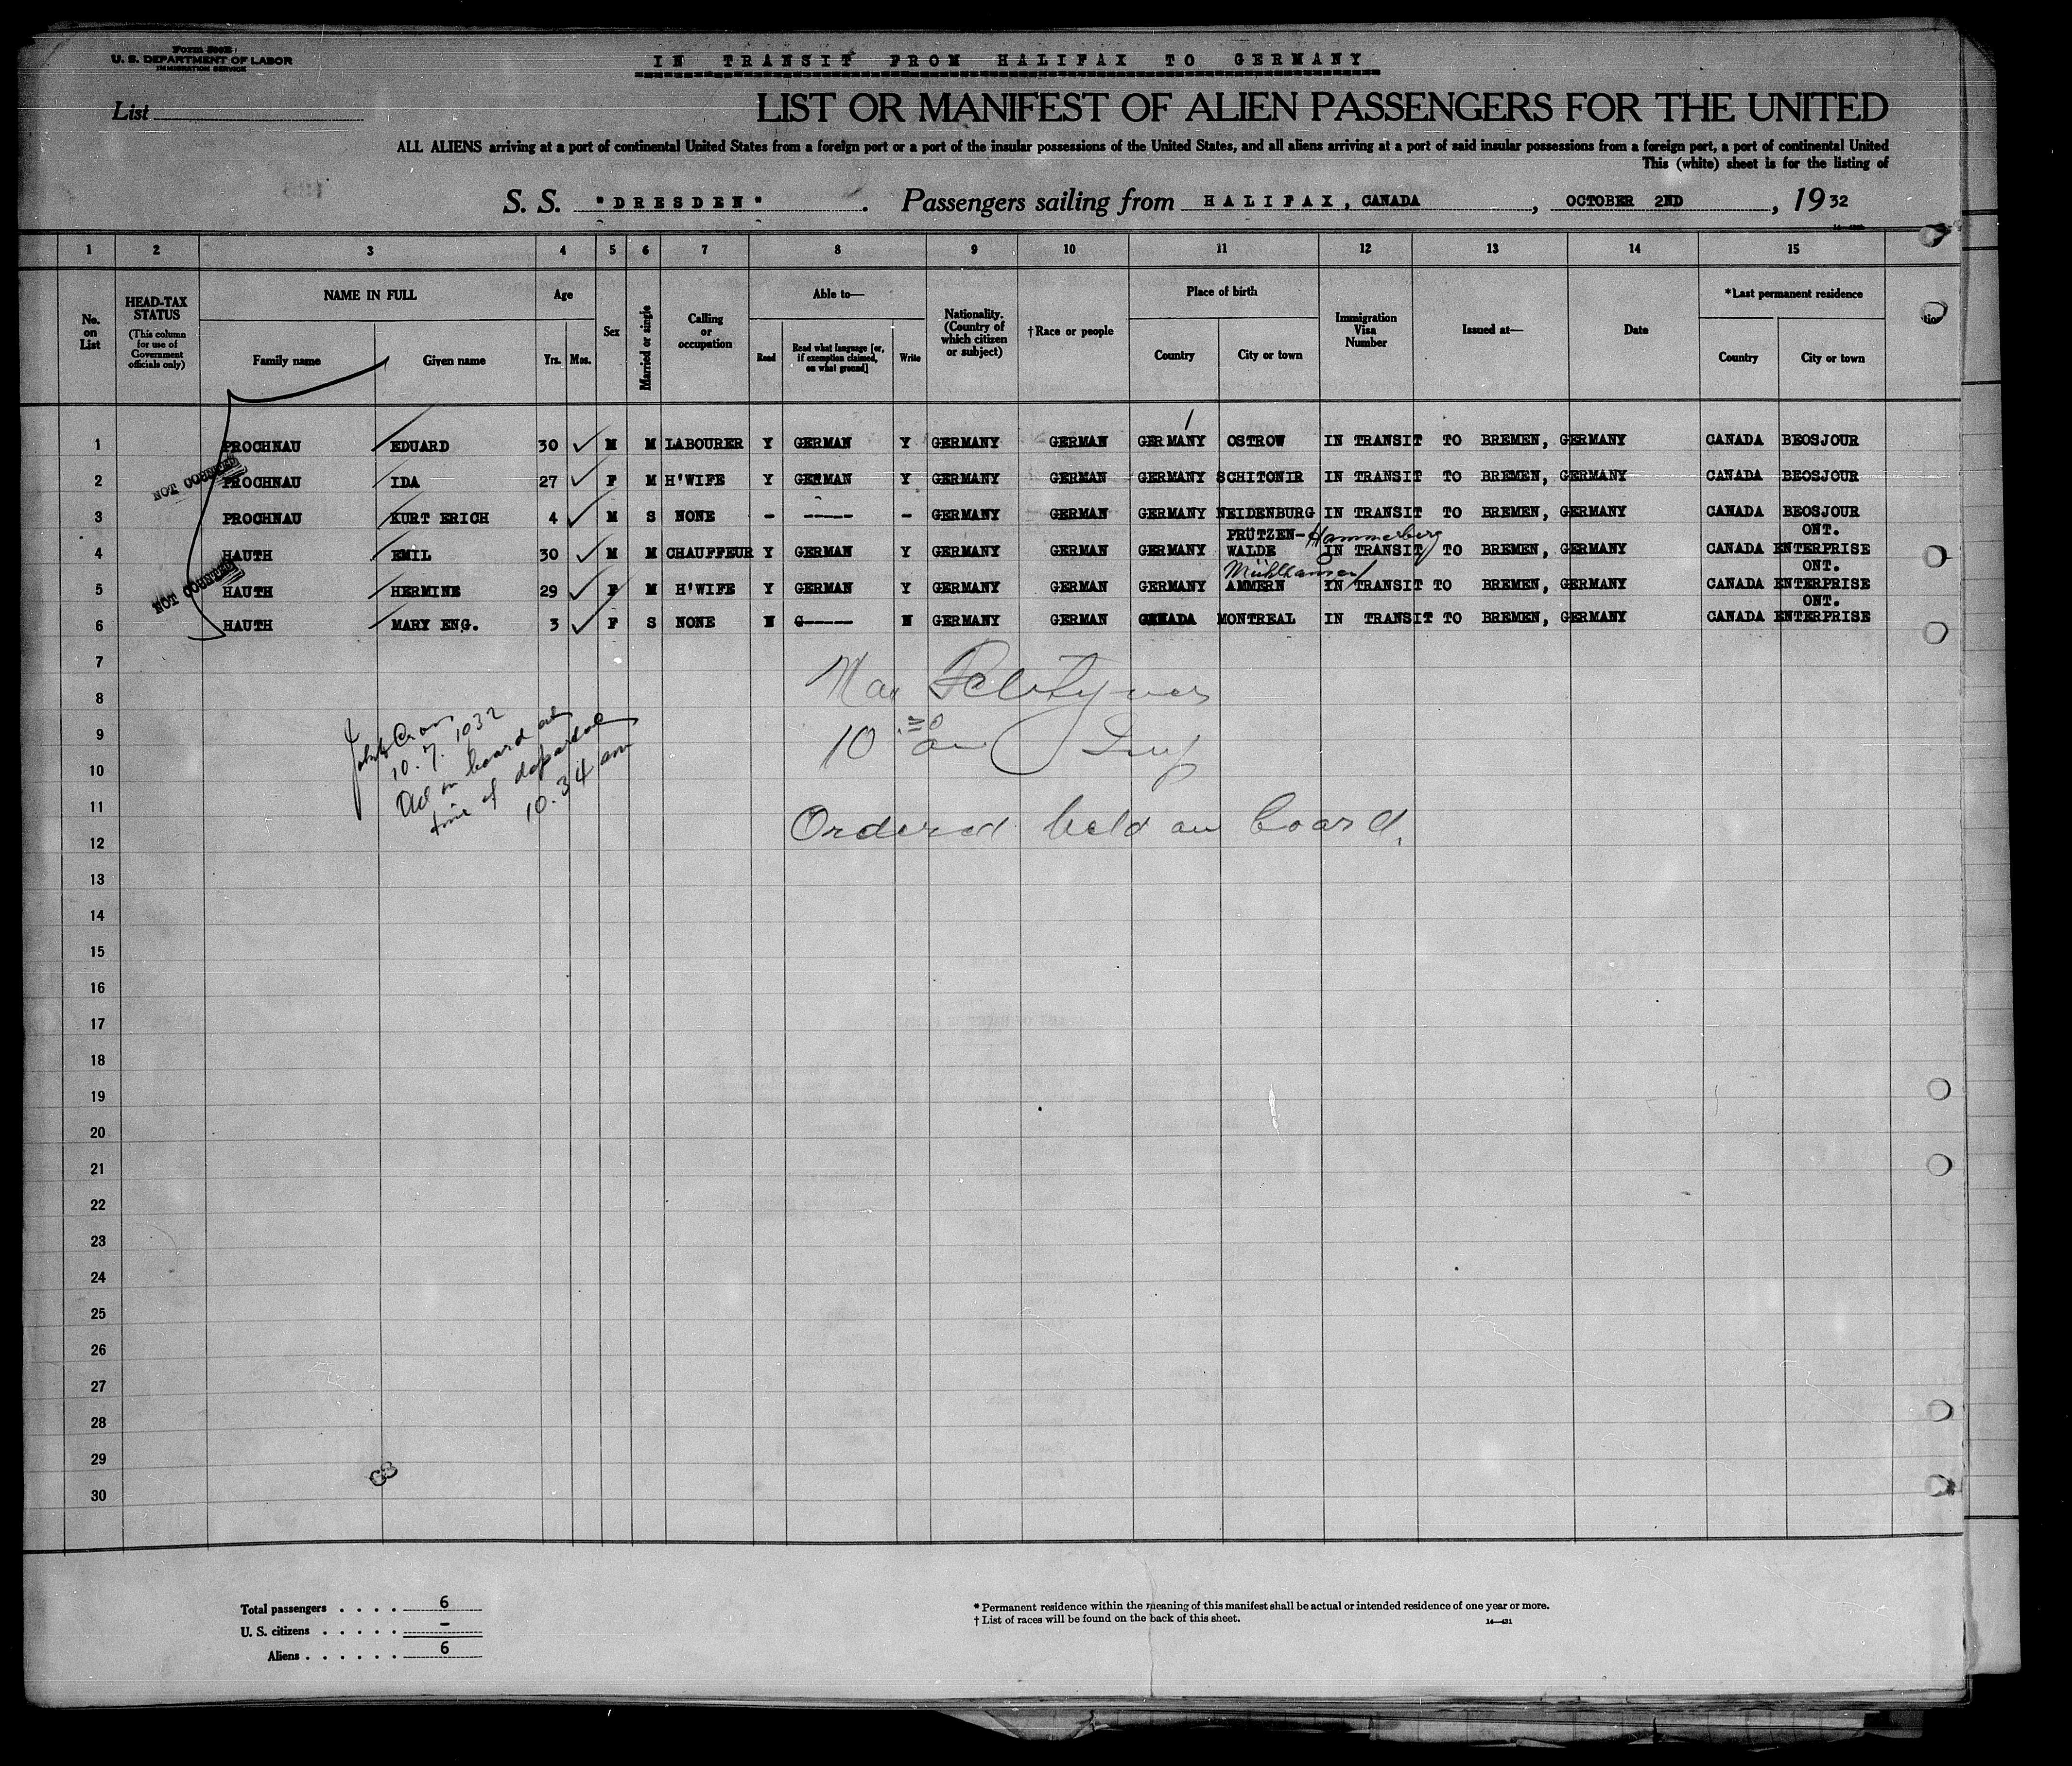 Form 500B
U. S. DEPARTMENT OF LABOR
IMMIGRATION SERVICE
IN TRANSIT FROM HALIFAX TO GERMANY
List
LIST OR MANIFEST OF ALIEN PASSENGERS FOR THE UNITED
ALL ALIENS arriving at a port of continental United States from a foreign port or a port of the insular possessions of the United States, and all aliens arriving at a port of said insular possessions from a foreign port, a port of continental United
This (white) sheet is for the listing of
S. S. "DRESDEN". Passengers sailing from HALIFAX, CANADA, OCTOBER 2ND, 1932
1 2 3 4 5 6 7 8 9 10 11 12 13 14 15
No. on List
HEAD-TAX STATUS
(This column for use of Government officials only)
NAME IN FULL
Family name Given name
Age
Yrs. Mos.
Sex
Married or single
Calling or occupation
Able to—
Read
Read what language [or, if exemption claimed, on what ground]
Write
Nationality. (Country of which citizen or subject)
†Race or people
Place of birth
Country City or town
Immigration Visa Number
Issued at—
Date
*Last permanent residence
Country City or town
1 PROCHNAU EDUARD 30 M M LABOURER Y GERMAN Y GERMANY GERMAN GERMANY OSTROW IN TRANSIT TO BREMEN, GERMANY CANADA BEOSJOUR
2 PROCHNAU IDA 27 F M H'WIFE Y GERMAN Y GERMANY GERMAN GERMANY SCHITONIR IN TRANSIT TO BREMEN, GERMANY CANADA BEOSJOUR
NOT COUNTED
3 PROCHNAU KURT ERICH 4 M S NONE - ----- - GERMANY GERMAN GERMANY NEIDENBURG IN TRANSIT TO BREMEN, GERMANY CANADA BEOSJOUR
PRÜTZEN- Hammerberg ONT.
4 HAUTH EMIL 30 M M CHAUFFEUR Y GERMAN Y GERMANY GERMAN GERMANY WALDE IN TRANSIT TO BREMEN, GERMANY CANADA ENTERPRISE
Mühlhausen ONT.
5 HAUTH HERMINE 29 F M H'WIFE Y GERMAN Y GERMANY GERMAN GERMANY AMMERN IN TRANSIT TO BREMEN, GERMANY CANADA ENTERPRISE
NOT COUNTED
ONT.
6 HAUTH MARY ENG. 3 F S NONE N G----- N GERMANY GERMAN CANADA MONTREAL IN TRANSIT TO BREMEN, GERMANY CANADA ENTERPRISE
7
8
9
10
11
12
13
14
15
16
17
18
19
20
21
22
23
24
25
26
27
28
29
30
10. 7. 1032
All on board at
time of departure
10.34 am
Ordered held on board.
Total passengers . . . . 6
U. S. citizens . . . . . -
Aliens . . . . . . 6
* Permanent residence within the meaning of this manifest shall be actual or intended residence of one year or more.
† List of races will be found on the back of this sheet.
14—431